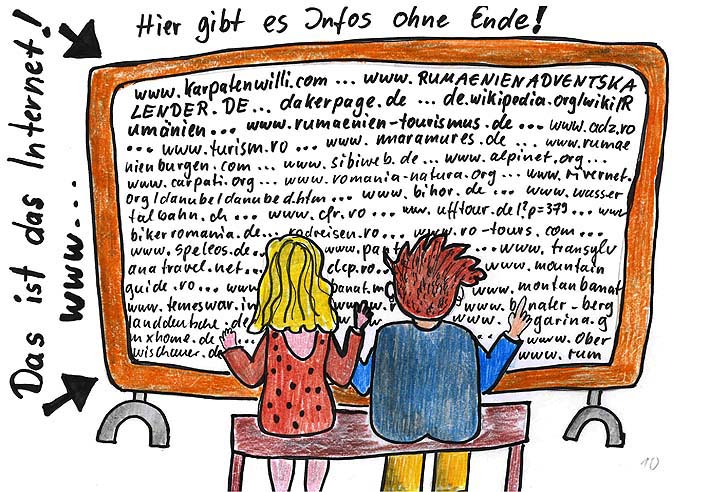 Hier gibt es Infos ohne Ende!
Das ist das Internet!
www...
www.karpatenwilli.com ... www.RUMAENIENADVENTSKA
LENDER.DE... dakerpage.de ... de.wikipedia.org/wiki/R
umänien... www.rumaenien-tourismus.de... www.adz.ro
... www.turism.ro ... www.maramures.de ... www.rumae
nienburgen.com ... www.sibiweb.de ... www.alpinet.org...
www.carpati.org ... www.romania-natura.org ... www.rivernet.
org/danube/danubed.htm ... www.bihor.de ... www.wasser
talbahn.ch ... www.cfr.ro ... www.ufftour.de/?p=379 ... www
bikerromania.de... radreisen.ro... www.ro-tours.com...
www.speleos.de... www.pan ... www.transylv
aniatravel.net... clcp.ro... www.mountain
guide.ro ... www.banat.m www.montanbanat
www.temeswar.in www.banater-berg
landdeutsche.de www. garina.g
mxhome.de... www.ober
wischauer.de www.rum
10